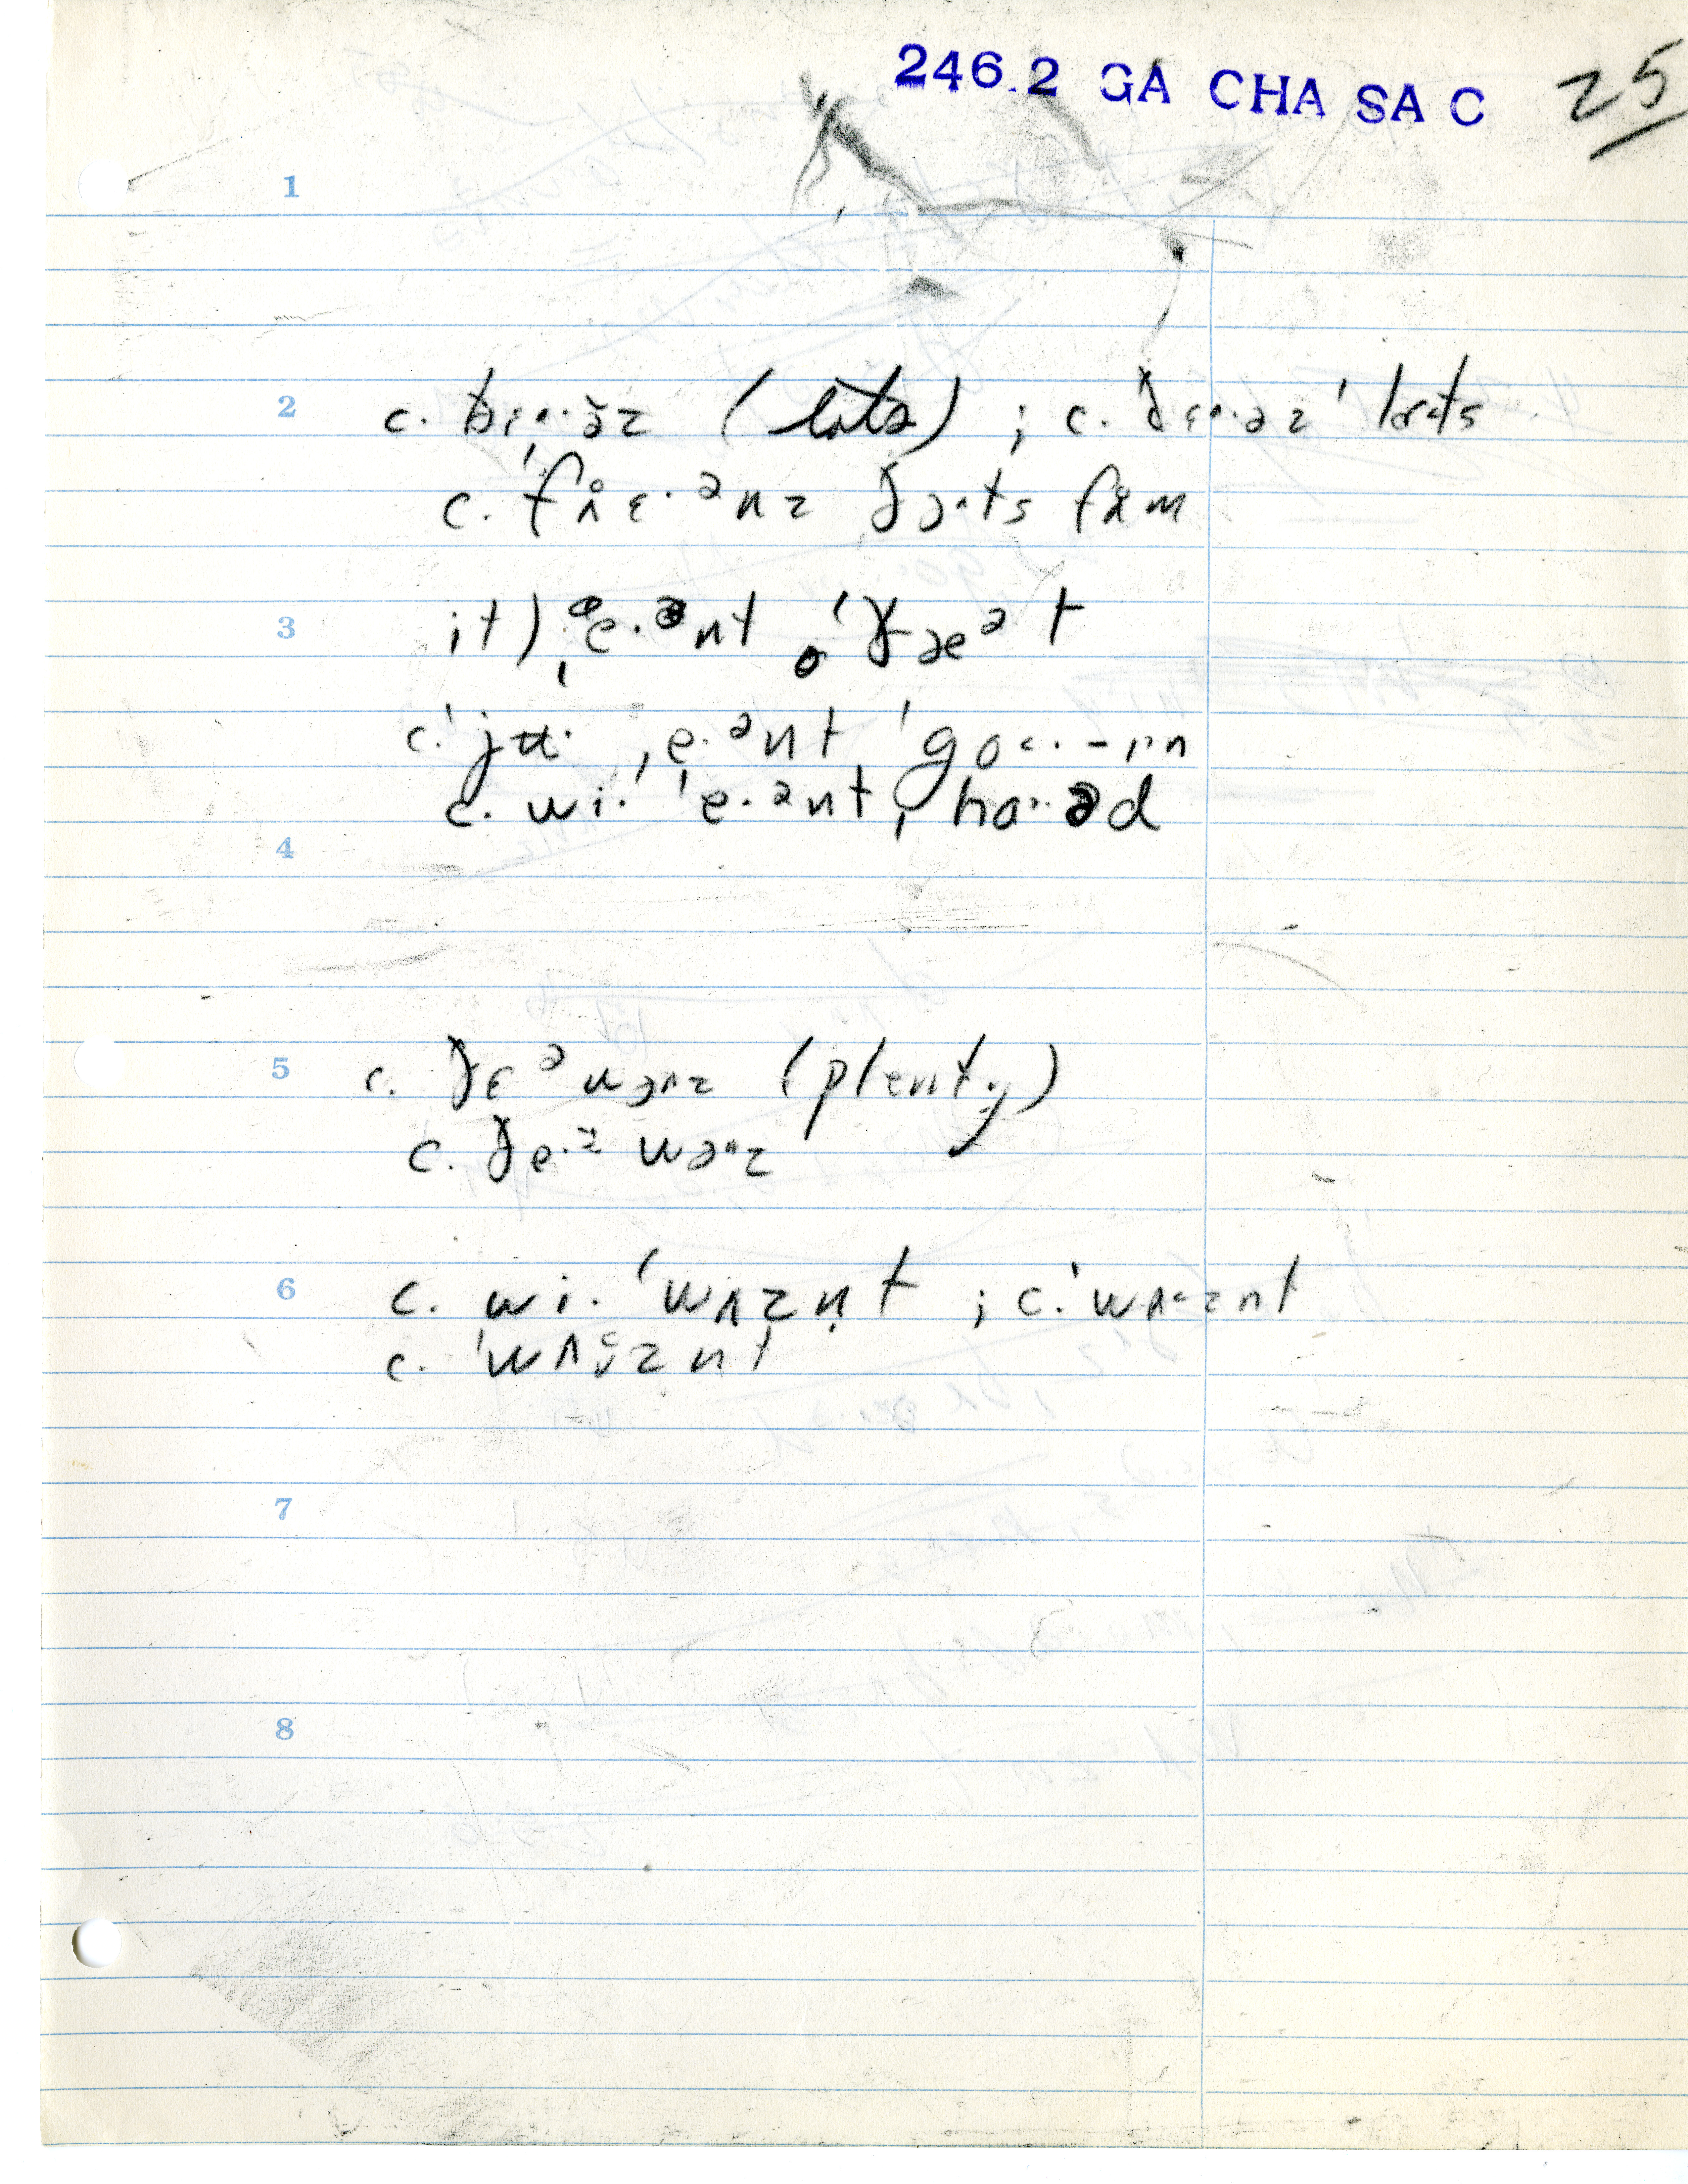 246.2 GA CHA SA C 25
1
2 c. (lots) ; c. ðɛ·əz ' lɑts
c. fɹ̊ɛ·ᵊnz ðɔts fɹ̊m
3 it) ˌe·ᵊnt 'ðæᵊt
c. 'jʉ· ˌe·ᵊnt 'go·-ɪn
c. wi· 'e·ᵊnt ˌhɑ·əd
4
5 c. ðɛᵊ wɔnz (plenty)
c. ðe·ᵊ wɔnz
6 c. wi· 'wʌzn̩t ; c. 'wʌznt
c. 'wʌznt
7
8